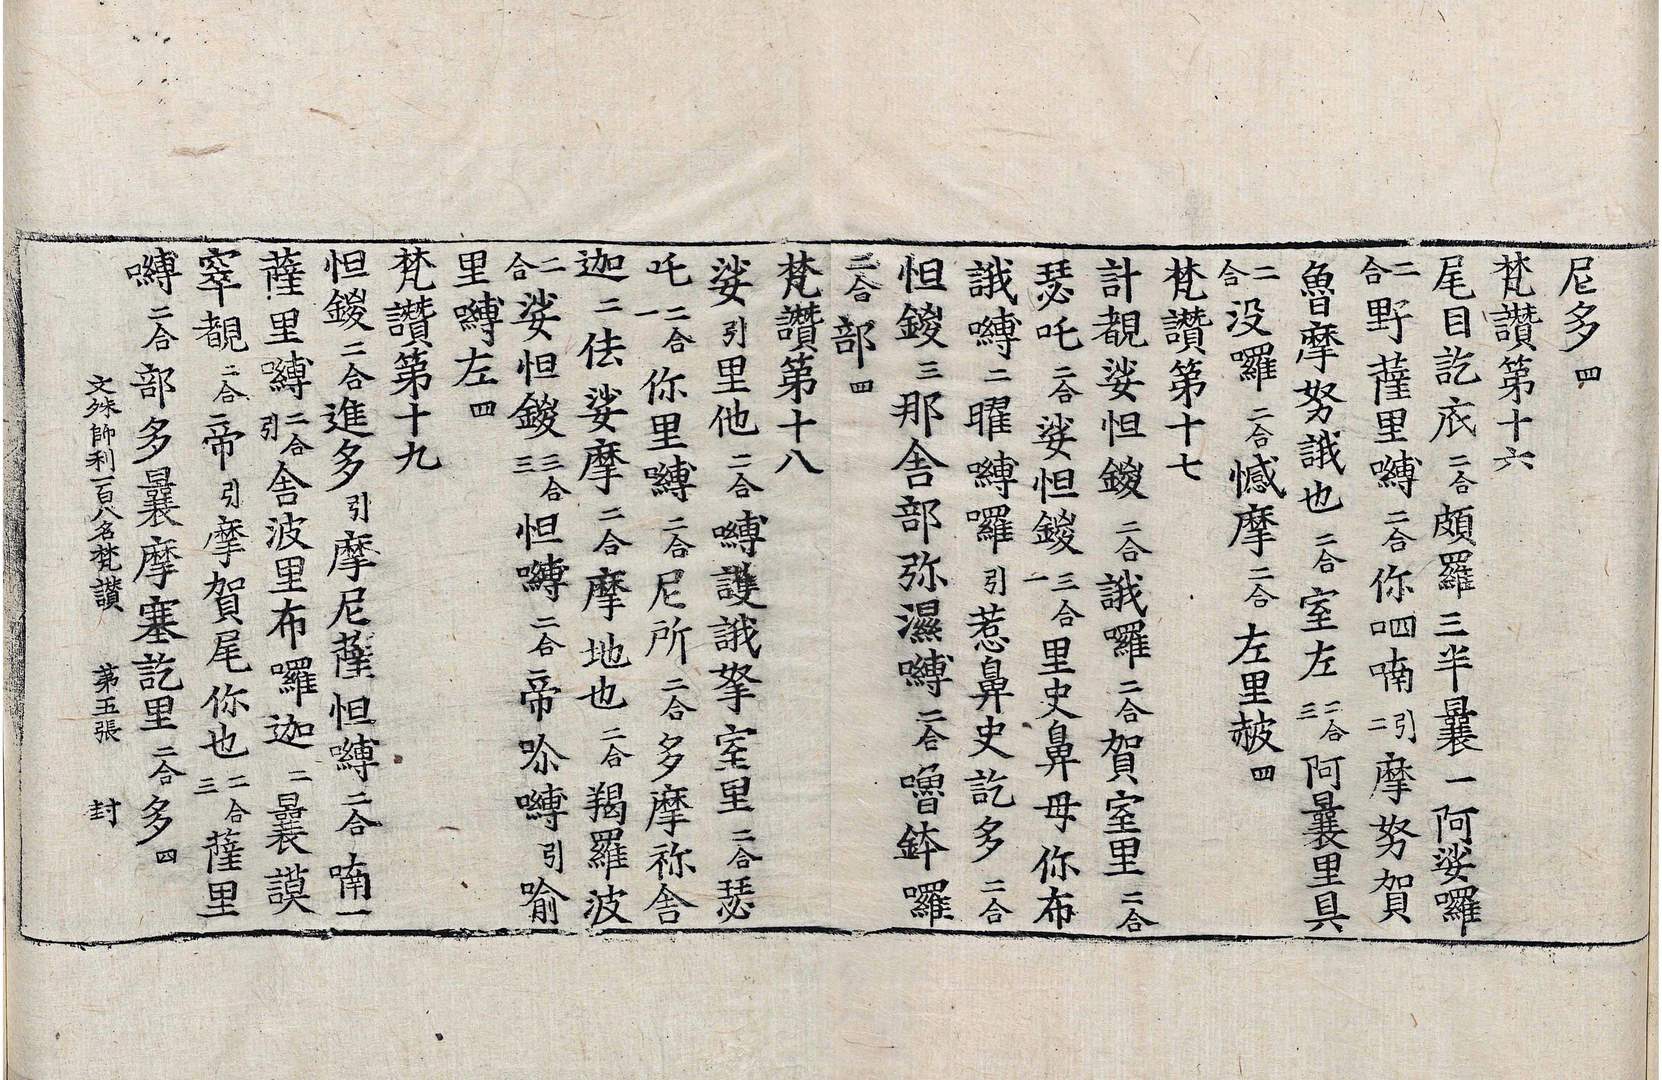 尼多四
梵讃第十六
尾目訖底二合頗羅三半曩一阿娑囉
二合野薩里嚩二合你呬喃引二摩努賀
魯摩努誐也二合室左二合三阿曩里具
二合没囉二合憾摩二合左里赧四
梵讃第十七
計覩娑怛鑁二合誐囉二合賀室里二合
瑟吒二合娑怛鑁三合一里史鼻毋你布
誐嚩二曜嚩囉引惹鼻史訖多二合
怛鑁三那舍部弥濕嚩二合嚕鉢囉
二合部四
梵讃第十八
娑引里他二合嚩護誐拏室里二合瑟
吒二合一你里嚩二合尼所二合多摩祢舍
迦二佉娑摩二合摩地也二合羯羅波
二合娑怛鑁三合三怛嚩二合帝尒嚩引喻
里嚩左四
梵讃第十九
怛鑁二合進多引摩尼薩怛嚩二合喃一
薩里嚩二合引舍波里布囉迦二曩謨
窣覩二合帝引摩賀尾你也二合三薩里
嚩二合部多曩摩塞訖里二合多四
文殊師利一百八名梵讃 第五張 封